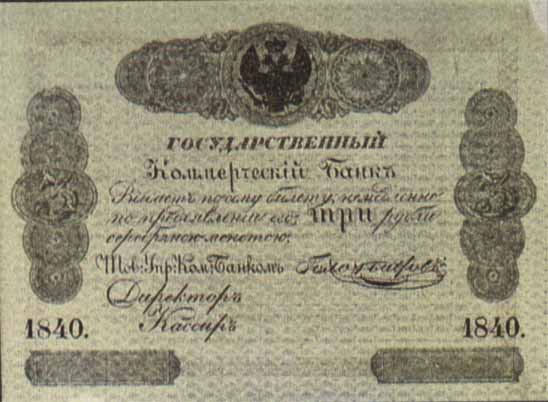 ГОСУДАРСТВЕННЫЙ
Коммерческій Банкъ
Выдаетъ по сему билету, немедленно
по предъявленіи его три рубли
серебряною монетою.
Тов: Упр: Ком: Банкомъ
Директоръ
Кассиръ
1840. 1840.